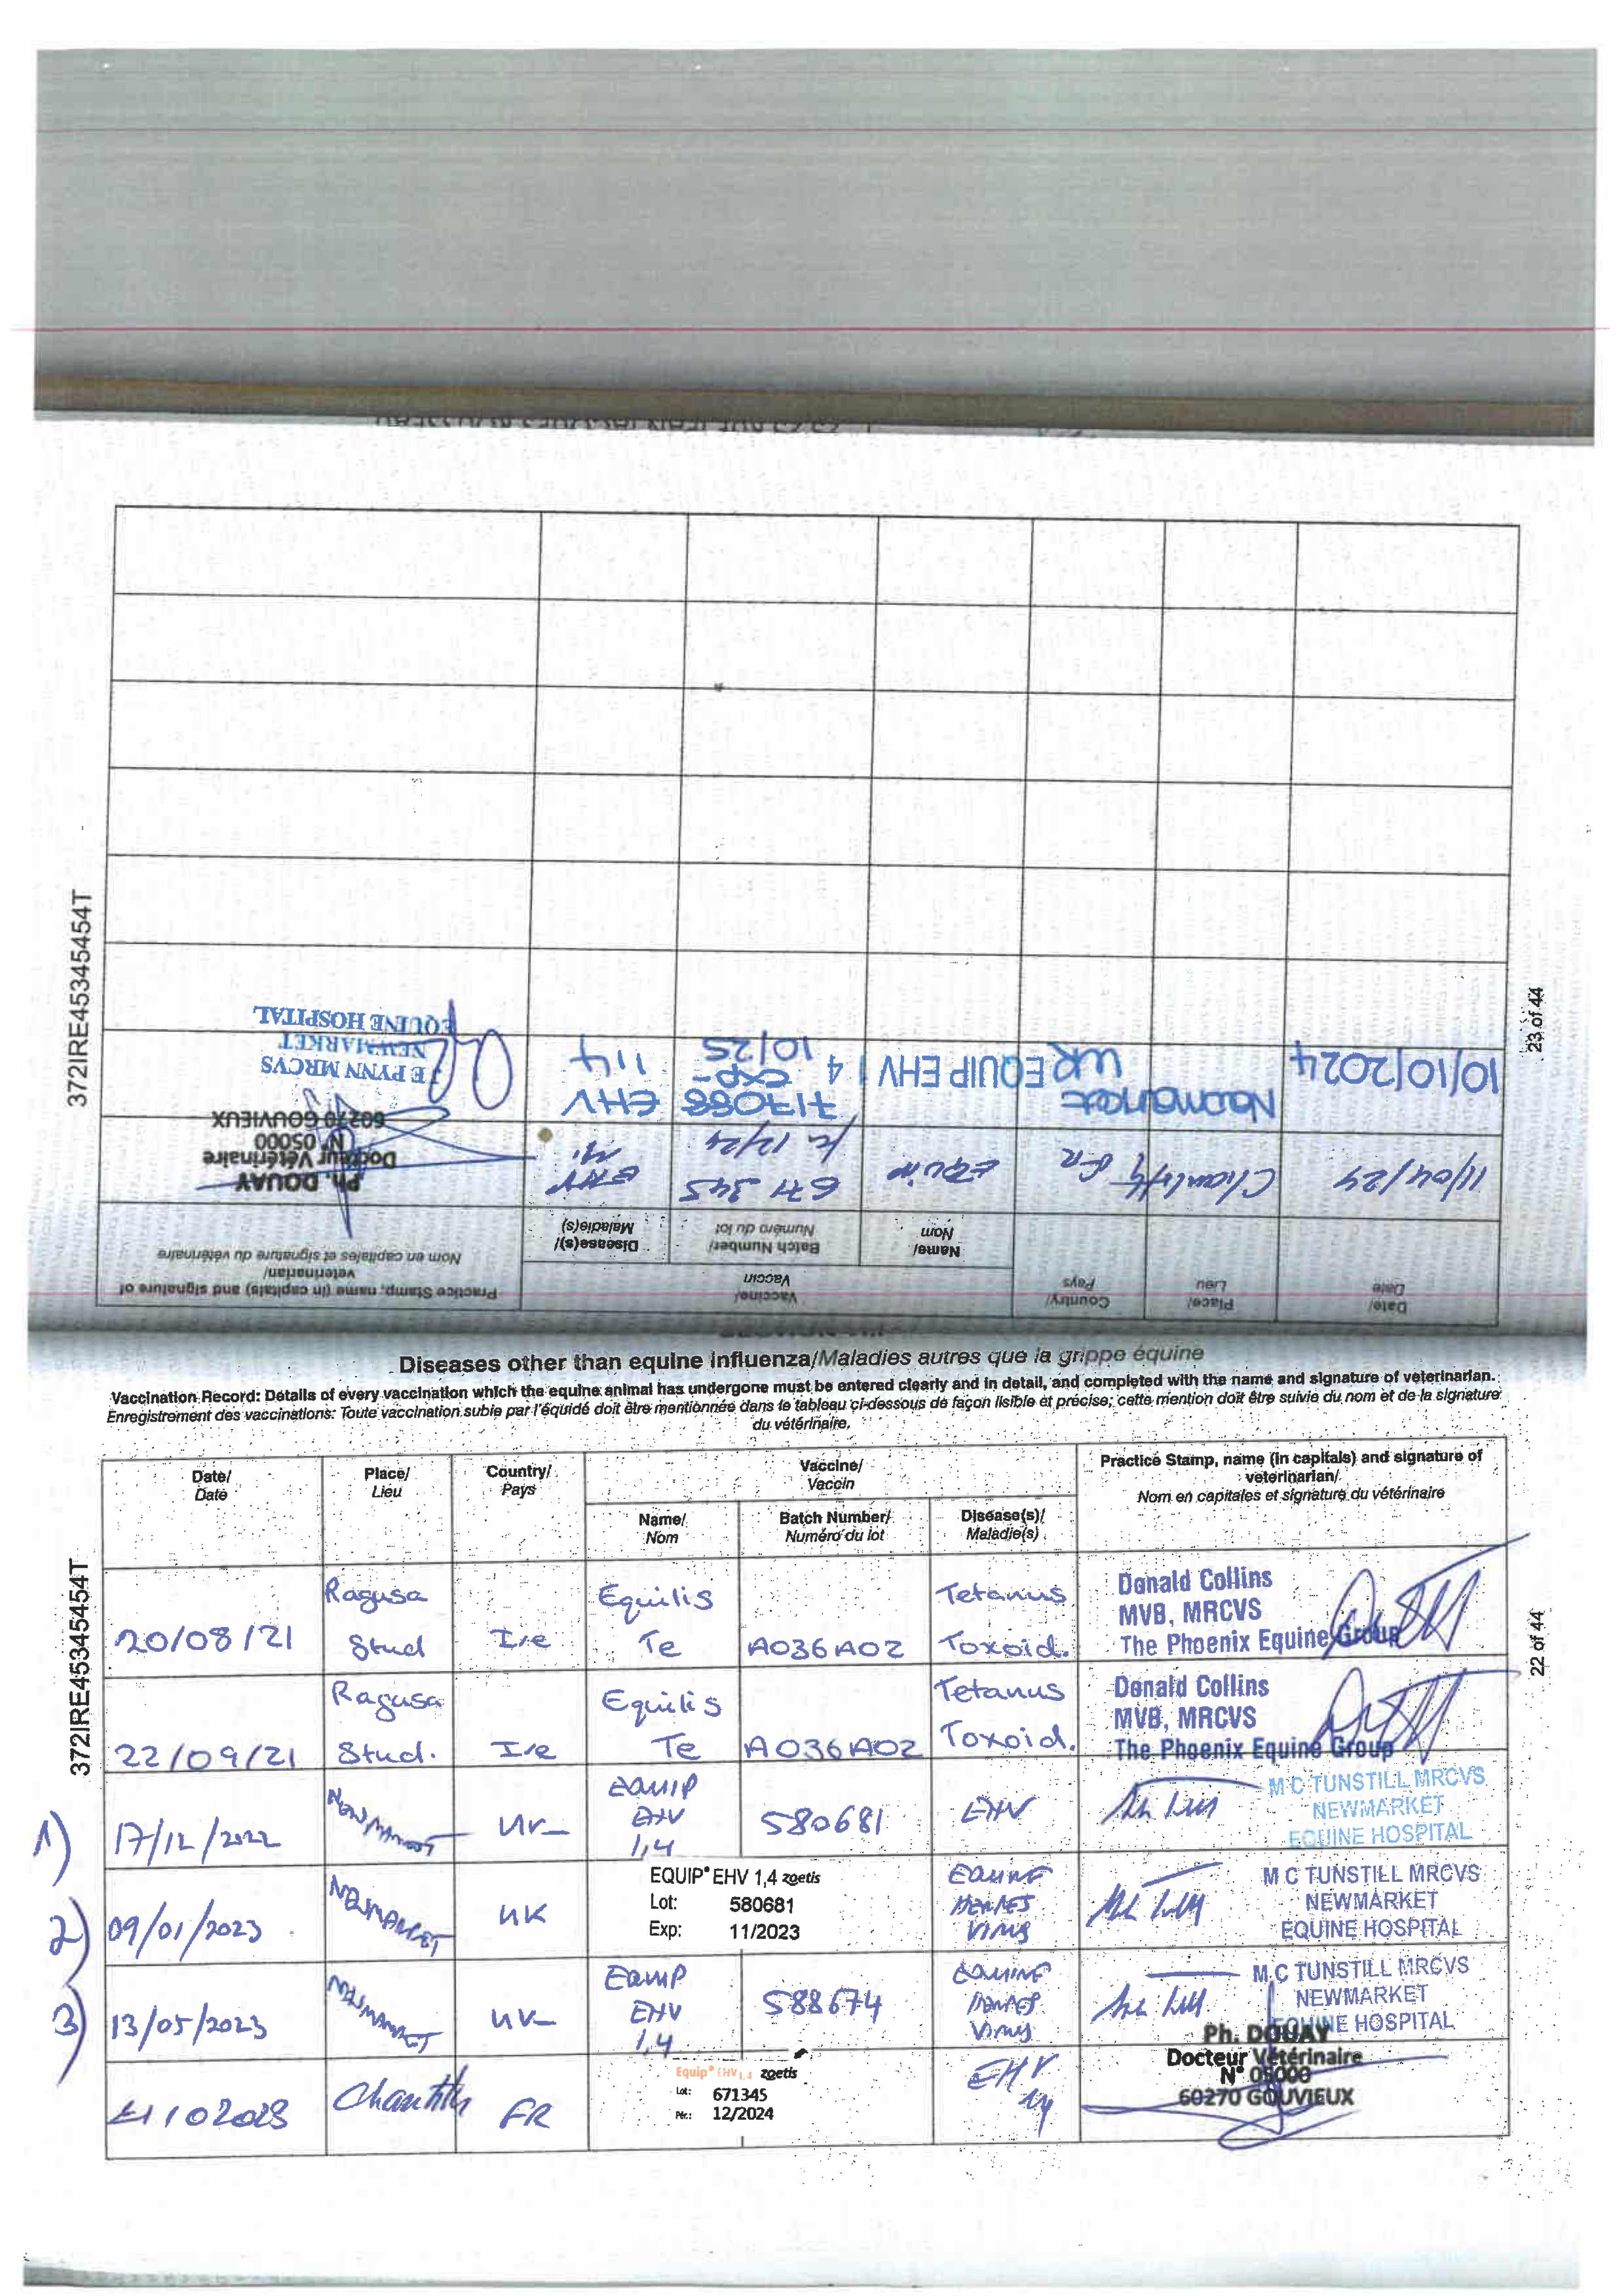 Diseases other than equine influenza/Maladies autres que la grippe équine
Vaccination Record: Details of every vaccination which the equine animal has undergone must be entered clearly and in detail, and completed with the name and signature of veterinarian.
Enregistrement des vaccinations: Toute vaccination subie par l'équidé doit être mentionnée dans le tableau ci-dessous de façon lisible et précise; cette mention doit être suivie du nom et de la signature
du vétérinaire.
Date/
Date
Place/
Lieu
Country/
Pays
Vaccine/
Vaccin
Name/
Nom
Batch Number/
Numéro du lot
Disease(s)/
Maladie(s)
Practice Stamp, name (in capitals) and signature of
veterinarian/
Nom en capitales et signature du vétérinaire
20/08/21
Ragusa
Stud
Ire
Equilis
Te
A036A02
Tetanus
Toxoid.
Donald Collins
MVB, MRCVS
The Phoenix Equine Group
22/09/21
Ragusa
Stud.
Ire
Equilis
Te
A036A02
Tetanus
Toxoid.
Donald Collins
MVB, MRCVS
The Phoenix Equine Group
1)
17/12/2022
NEWMARKET
UK
EQUIP
EHV
1,4
580681
EHV
M C TUNSTILL MRCVS
NEWMARKET
EQUINE HOSPITAL
2)
09/01/2023
NEWMARKET
UK
EQUIP® EHV 1,4 zoetis
Lot: 580681
Exp: 11/2023
EQUINE
HERPES
VIRUS
M C TUNSTILL MRCVS
NEWMARKET
EQUINE HOSPITAL
3)
13/05/2023
NEWMARKET
UK
EQUIP
EHV
1,4
588674
EQUINE
HERPES
VIRUS
M C TUNSTILL MRCVS
NEWMARKET
EQUINE HOSPITAL
Chantilly
FR
Equip® EHV 1,4 zoetis
Lot: 671345
Per.: 12/2024
EHV
1,4
Ph. DOUAY
Docteur Vétérinaire
N° 05000
60270 GOUVIEUX
372IRE45345454T
22 of 44
Date/
Date
Place/
Lieu
Country/
Pays
Vaccine/
Vaccin
Name/
Nom
Batch Number/
Numéro du lot
Disease(s)/
Maladie(s)
Practice Stamp, name (in capitals) and signature of
veterinarian/
Nom en capitales et signature du vétérinaire
11/04/24
Chantilly
FR
EQUIP
671 345
12/24
EHV
Ph. DOUAY
Docteur Vétérinaire
N° 05000
60270 GOUVIEUX
10/10/2024
Newmarket
UK
EQUIP EHV 1 4
717088
exp-
10/25
EHV
1 1 4
J E PYNN MRCVS
NEWMARKET
EQUINE HOSPITAL
372IRE45345454T
23 of 44